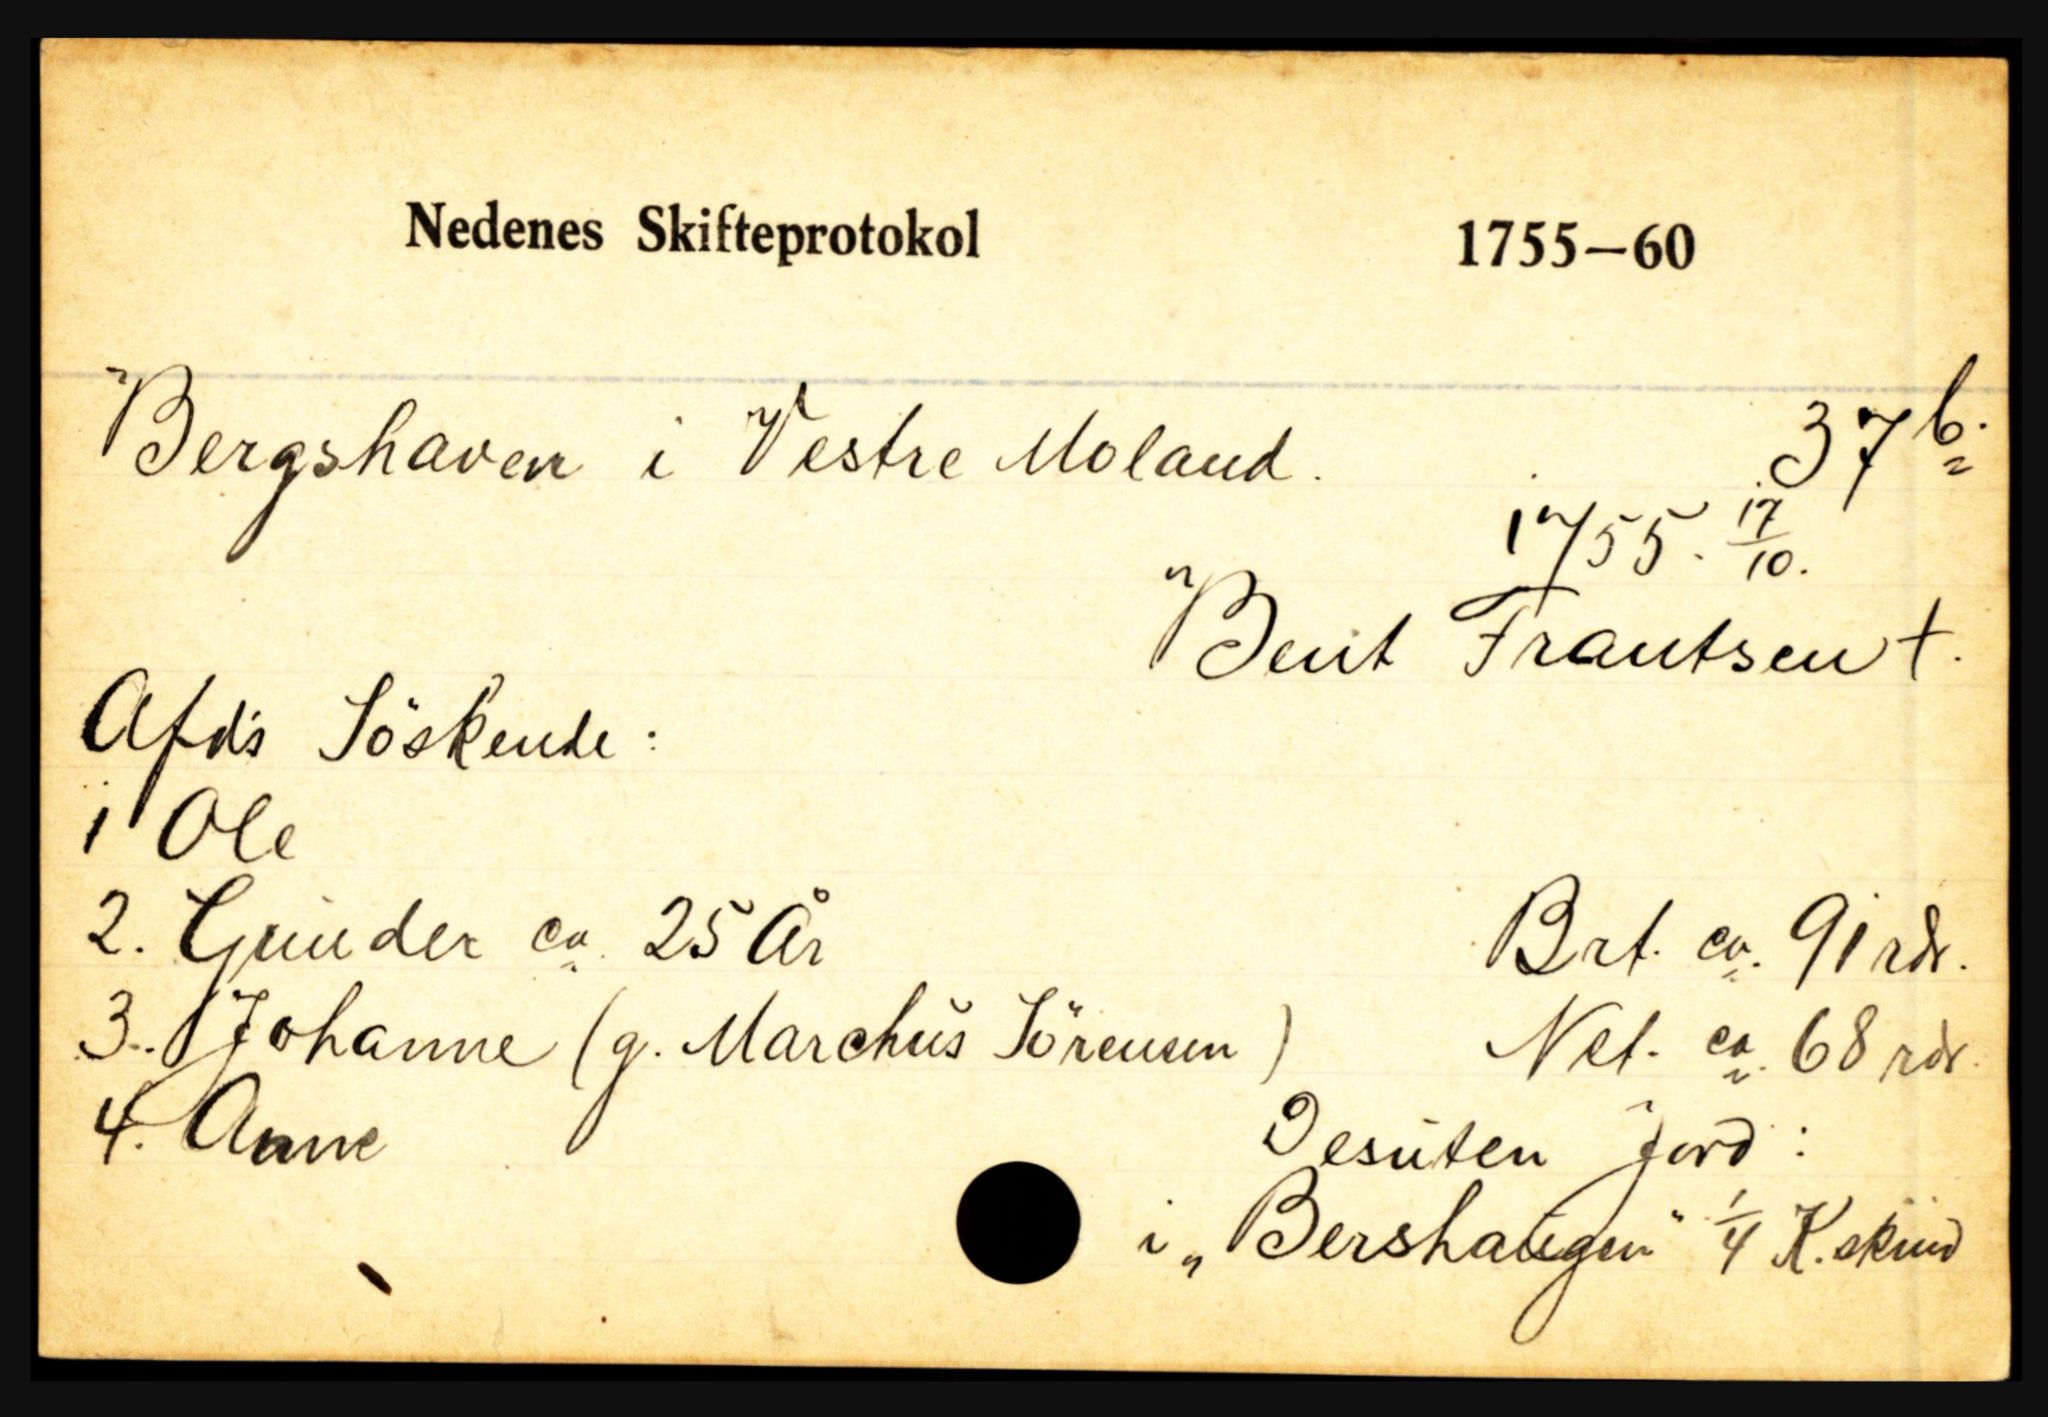 Nedenes Skifteprotokol 1755—60
Bergshaven i Vestre Moland. 37b.
1755. 17/10.
Bent Frantsen †.
Afd's Söskende:
1 Ole
2. Gunder ca. 25 År Brt. ca. 91 rdr.
3. Johanne (g. Marchus Sörensen) Net. ca. 68 rdr.
4. Anne Desuten jord:
i „Bershaugen“ 1/4 K.skind